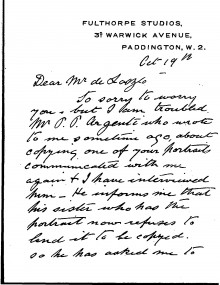 FULTHORPE STUDIOS,
3A WARWICK AVENUE,
PADDINGTON, W. 2.
Oct 19th
Dear Mr de Laszlo
So sorry to worry
you – but I am troubled
Mr P. P. Argenti who wrote
to me sometime ago, about
copying one of your portraits
communicated with me
again & I have interviewed
him – He informs me that
his sister who has the
portrait now refuses to
lend it to be copied.
so he has asked me to